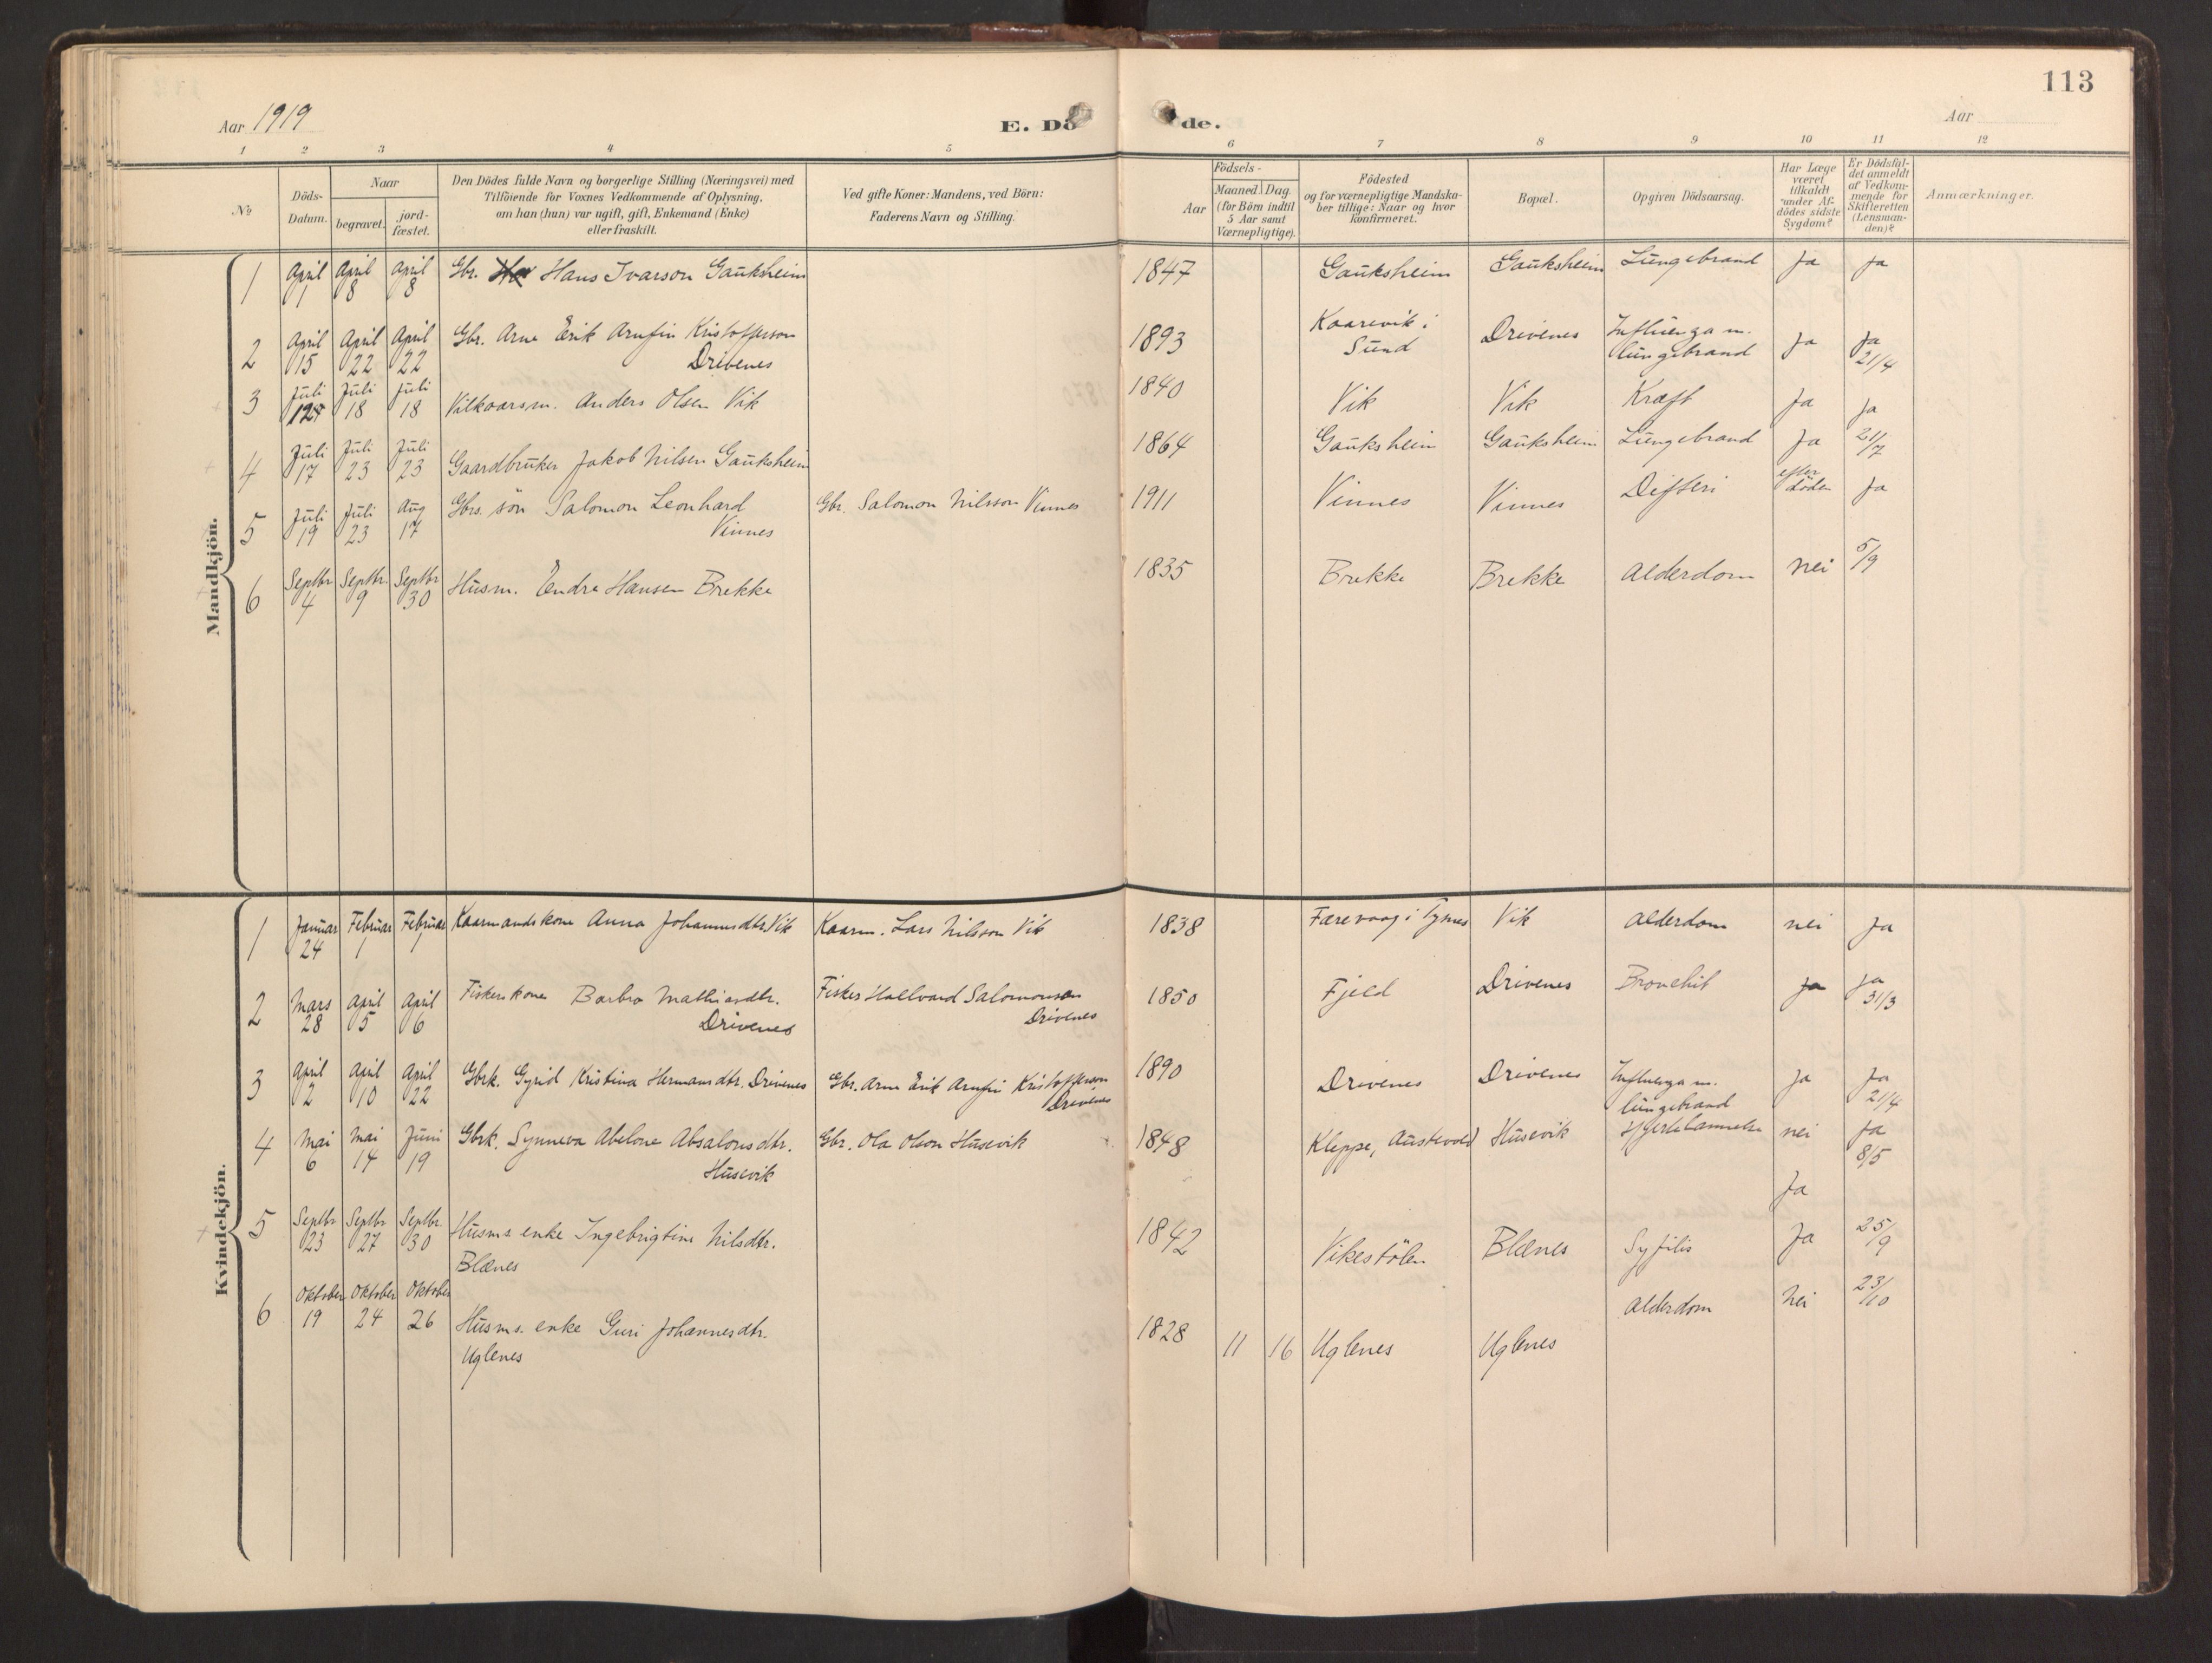 113
Aar 1919
E. Dö de.
Aar
1 2 3 4 5 6 7 8 9 10 11 12
№
Döds-
Datum.
Naar
begravet.
jord-
fæstet.
Den Dödes fulde Navn og borgerlige Stilling (Næringsvei) med
Tilföiende for Voxnes Vedkommende af Oplysning,
om han (hun) var ugift, gift, Enkemand (Enke)
eller fraskilt.
Ved gifte Koner: Mandens, ved Börn:
Faderens Navn og Stilling.
Födsels-
Aar
Maaned. Dag.
(for Börn indtil
5 Aar samt
Værnepligtige).
Födested
og for værnepligtige Mandska-
ber tillige: Naar og hvor
konfirmeret.
Bopæl.
Opgiven Dödsaarsag.
Har Læge
været
tilkaldt
under Af-
dödes sidste
Sygdom?
Er Dödsfal-
det anmeldt
af Vedkom-
mende for
Skifteretten
(Lensman-
den)?
Anmærkninger.
Mandkjön.
1 April 1 April 8 April 8 Gbr. Hans Ivarson Gauksheim 1847 Gauksheim Gauksheim Lungebrand Ja Ja
2 April 15 April 22 April 22 Gbr. Arne Erik Arnfin Kristofferson
Drivenes 1893 Kaarevik i
Sund Drivenes Influenza m.
lungebrand Ja Ja
21/4
3 Juli Juli 18 Juli 18 Vilkaarsm. Anders Olsen Vik 1840 Vik Vik Kræft Ja Ja
4 Juli 17 Juli 23 Juli 23 Gaardbruker Jakob Nilsen Gauksheim 1864 Gauksheim Gauksheim Lungebrand Ja 21/7
5 Juli 19 Juli 23 Aug 17 Gbrs. sön Salomon Leonhard
Vinnes Gbr. Salomon Nilsson Vinnes 1911 Vinnes Vinnes Difteri efter
döden Ja
6 Septbr 4 Septbr. 9 Septbr 30 Husm. Endre Hansen Brekke 1835 Brekke Brekke Alderdom nei 5/9
Kvindekjön.
1 Januar 24 Februar 1 Februar 1 Kaarmandskone Anna Johannesdtr. Vik Kaarm. Lars Nilsson Vik 1838 Færevaag i Tysnes Vik Alderdom nei Ja
2 Mars 28 April 5 April 6 Fiskerskone Barbro Mathiasdtr.
Drivenes Fisker Hallvard Salomonson
Drivenes 1850 Fjeld Drivenes Bronchit Ja Ja
31/3
3 April 2 April 10 April 22 Gbrk. Gyrid Kristina Hermansdtr. Drivenes Gbr. Arne Erik Arnfin Kristofferson
Drivenes 1890 Drivenes Drivenes Influenza m.
lungebrand Ja Ja
21/4
4 Mai 6 Mai 14 Juni 19 Gbrk. Synneva Abelone Absalonsdtr.
Husevik Gbr. Ola Olson Husevik 1848 Kleppe, Austevold Husevik Hjertelammelse nei Ja
8/5
Ja
5 Septbr 23 Septbr 27 Septbr. 30 Husms. enke Ingebrigtine Nilsdtr.
Blænes 1842 Vikestölen Blænes Syfilis Ja 25/9
6 Oktober 19 Oktober 24 Oktober 26 Husms. enke Guri Johannesdtr.
Uglenes 1828 11 16 Uglenes Uglenes Alderdom Nei 23/10